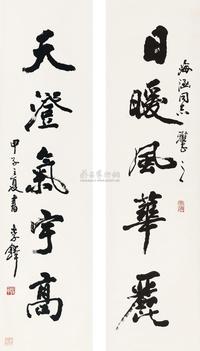 海涵同志鑒之
日暖風華麗
天澄氣宇高
甲子之夏書 李鐸